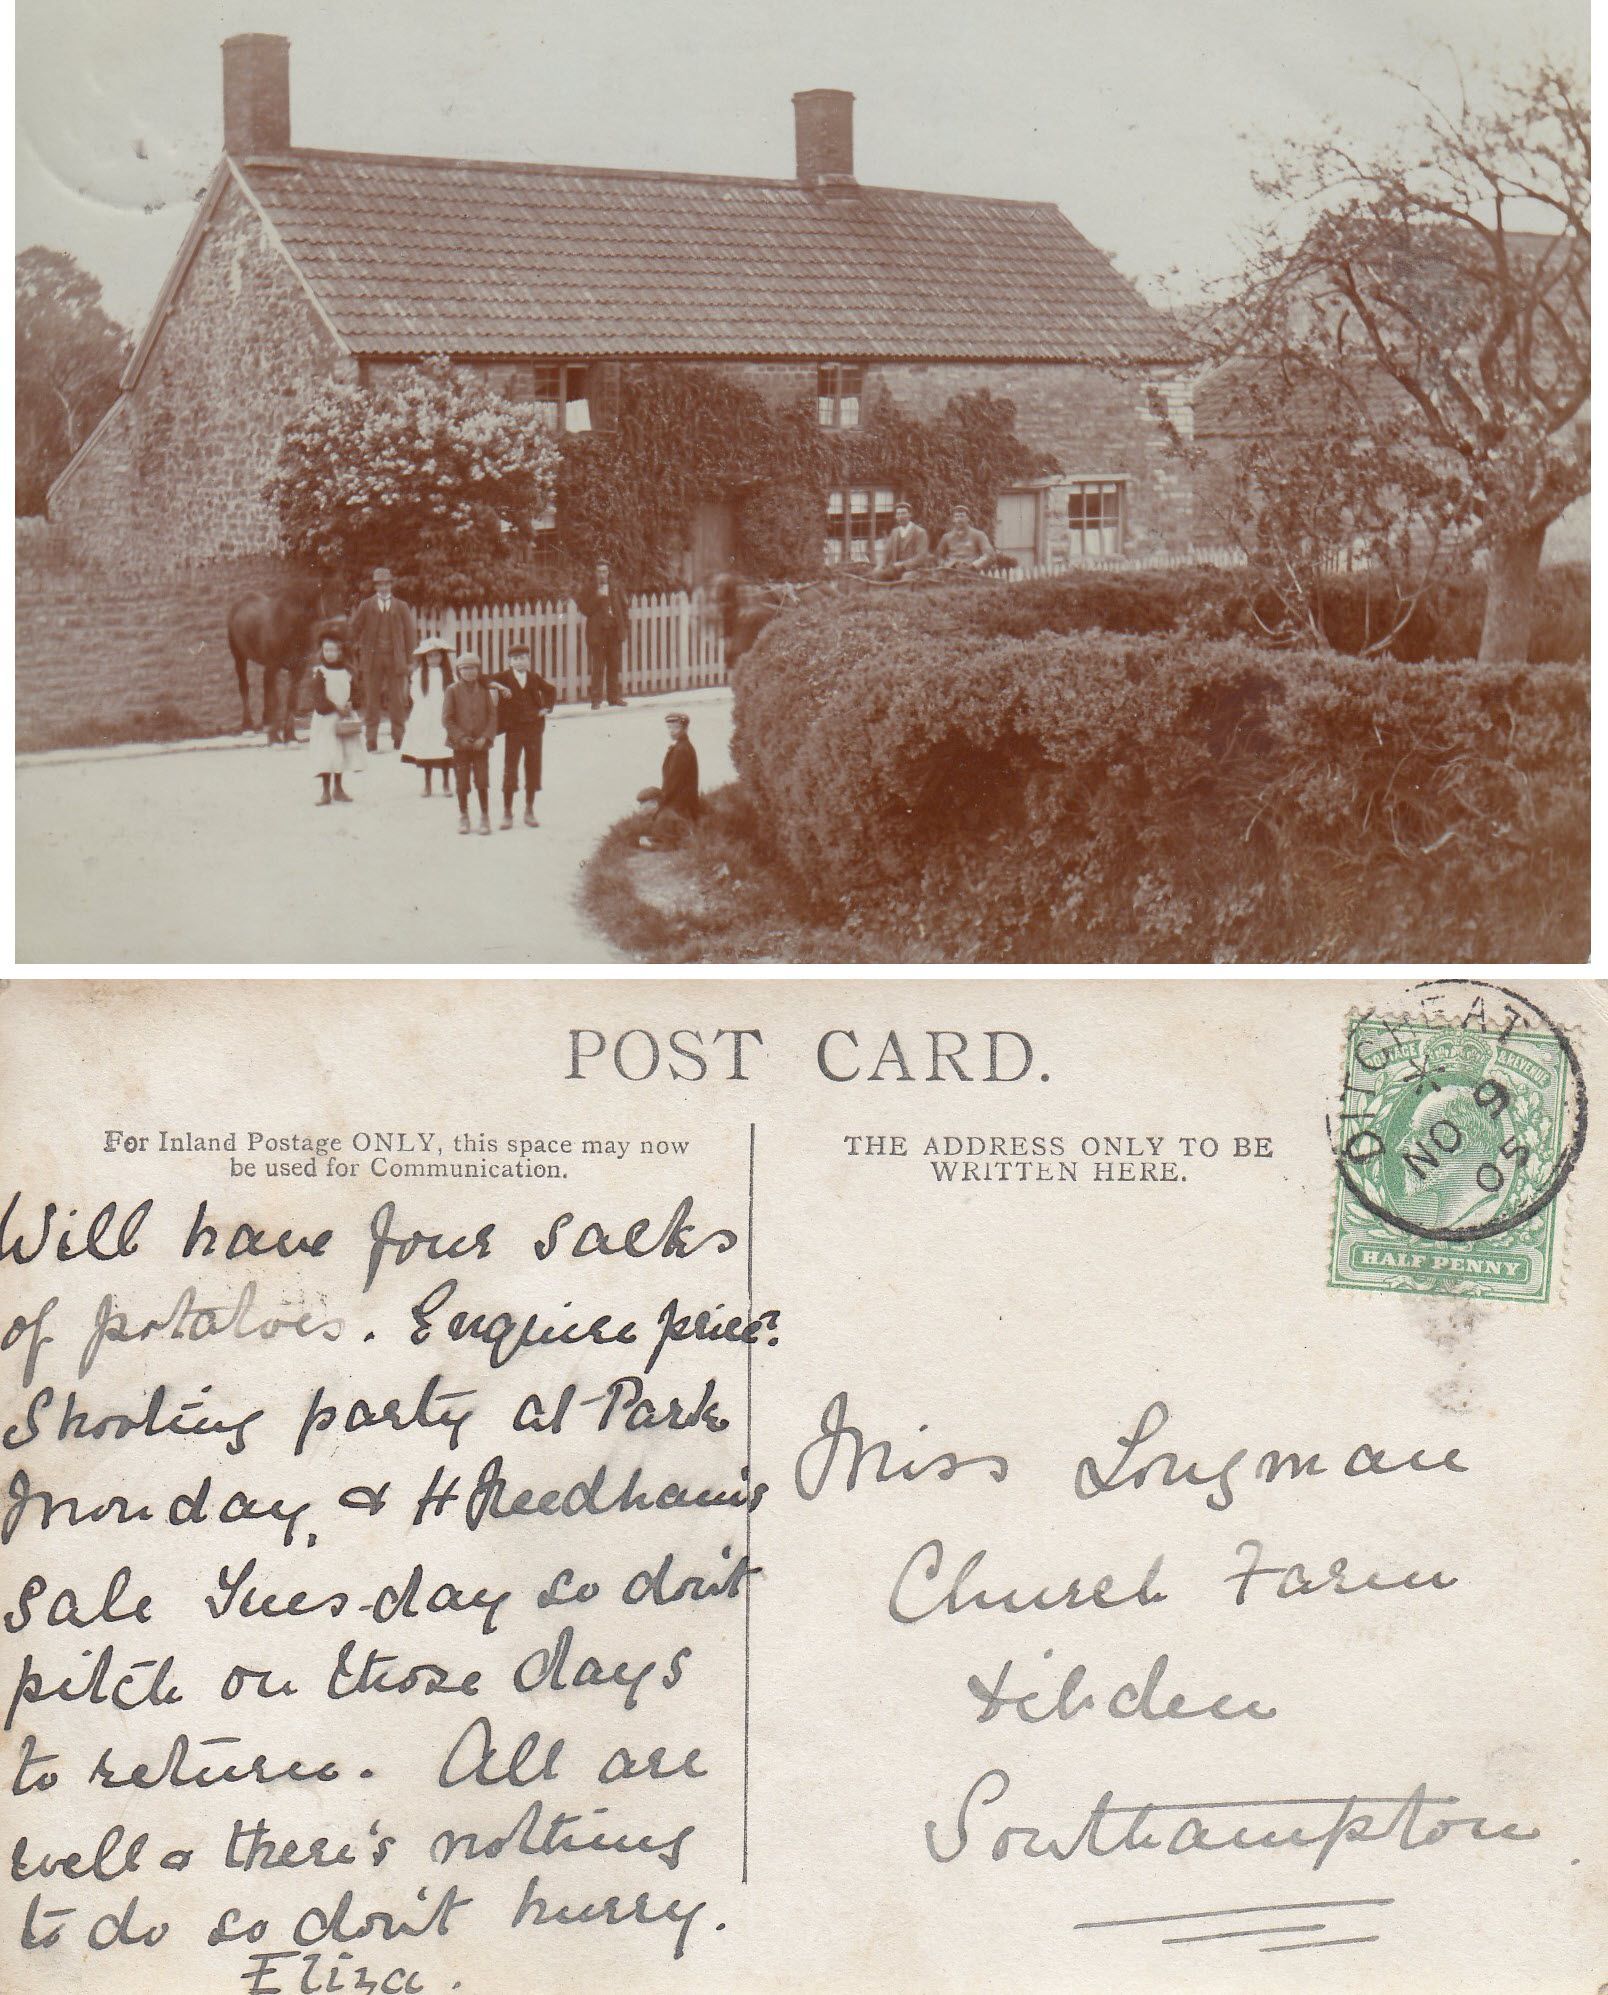 POST CARD.
For Inland Postage ONLY, this space may now
be used for Communication.
THE ADDRESS ONLY TO BE
WRITTEN HERE.
DITCHEAT
9
NO
05
POSTAGE & REVENUE
HALF PENNY
Will have four sacks
of potatoes. Enquire price?
Shooting party at Park
Monday, & H Needham's
sale Tues-day so don't
pitch on those days
to return. All are
well & there's nothing
to do so don't hurry.
Eliza.
Miss Longman
Church Farm
Dibden
Southampton.